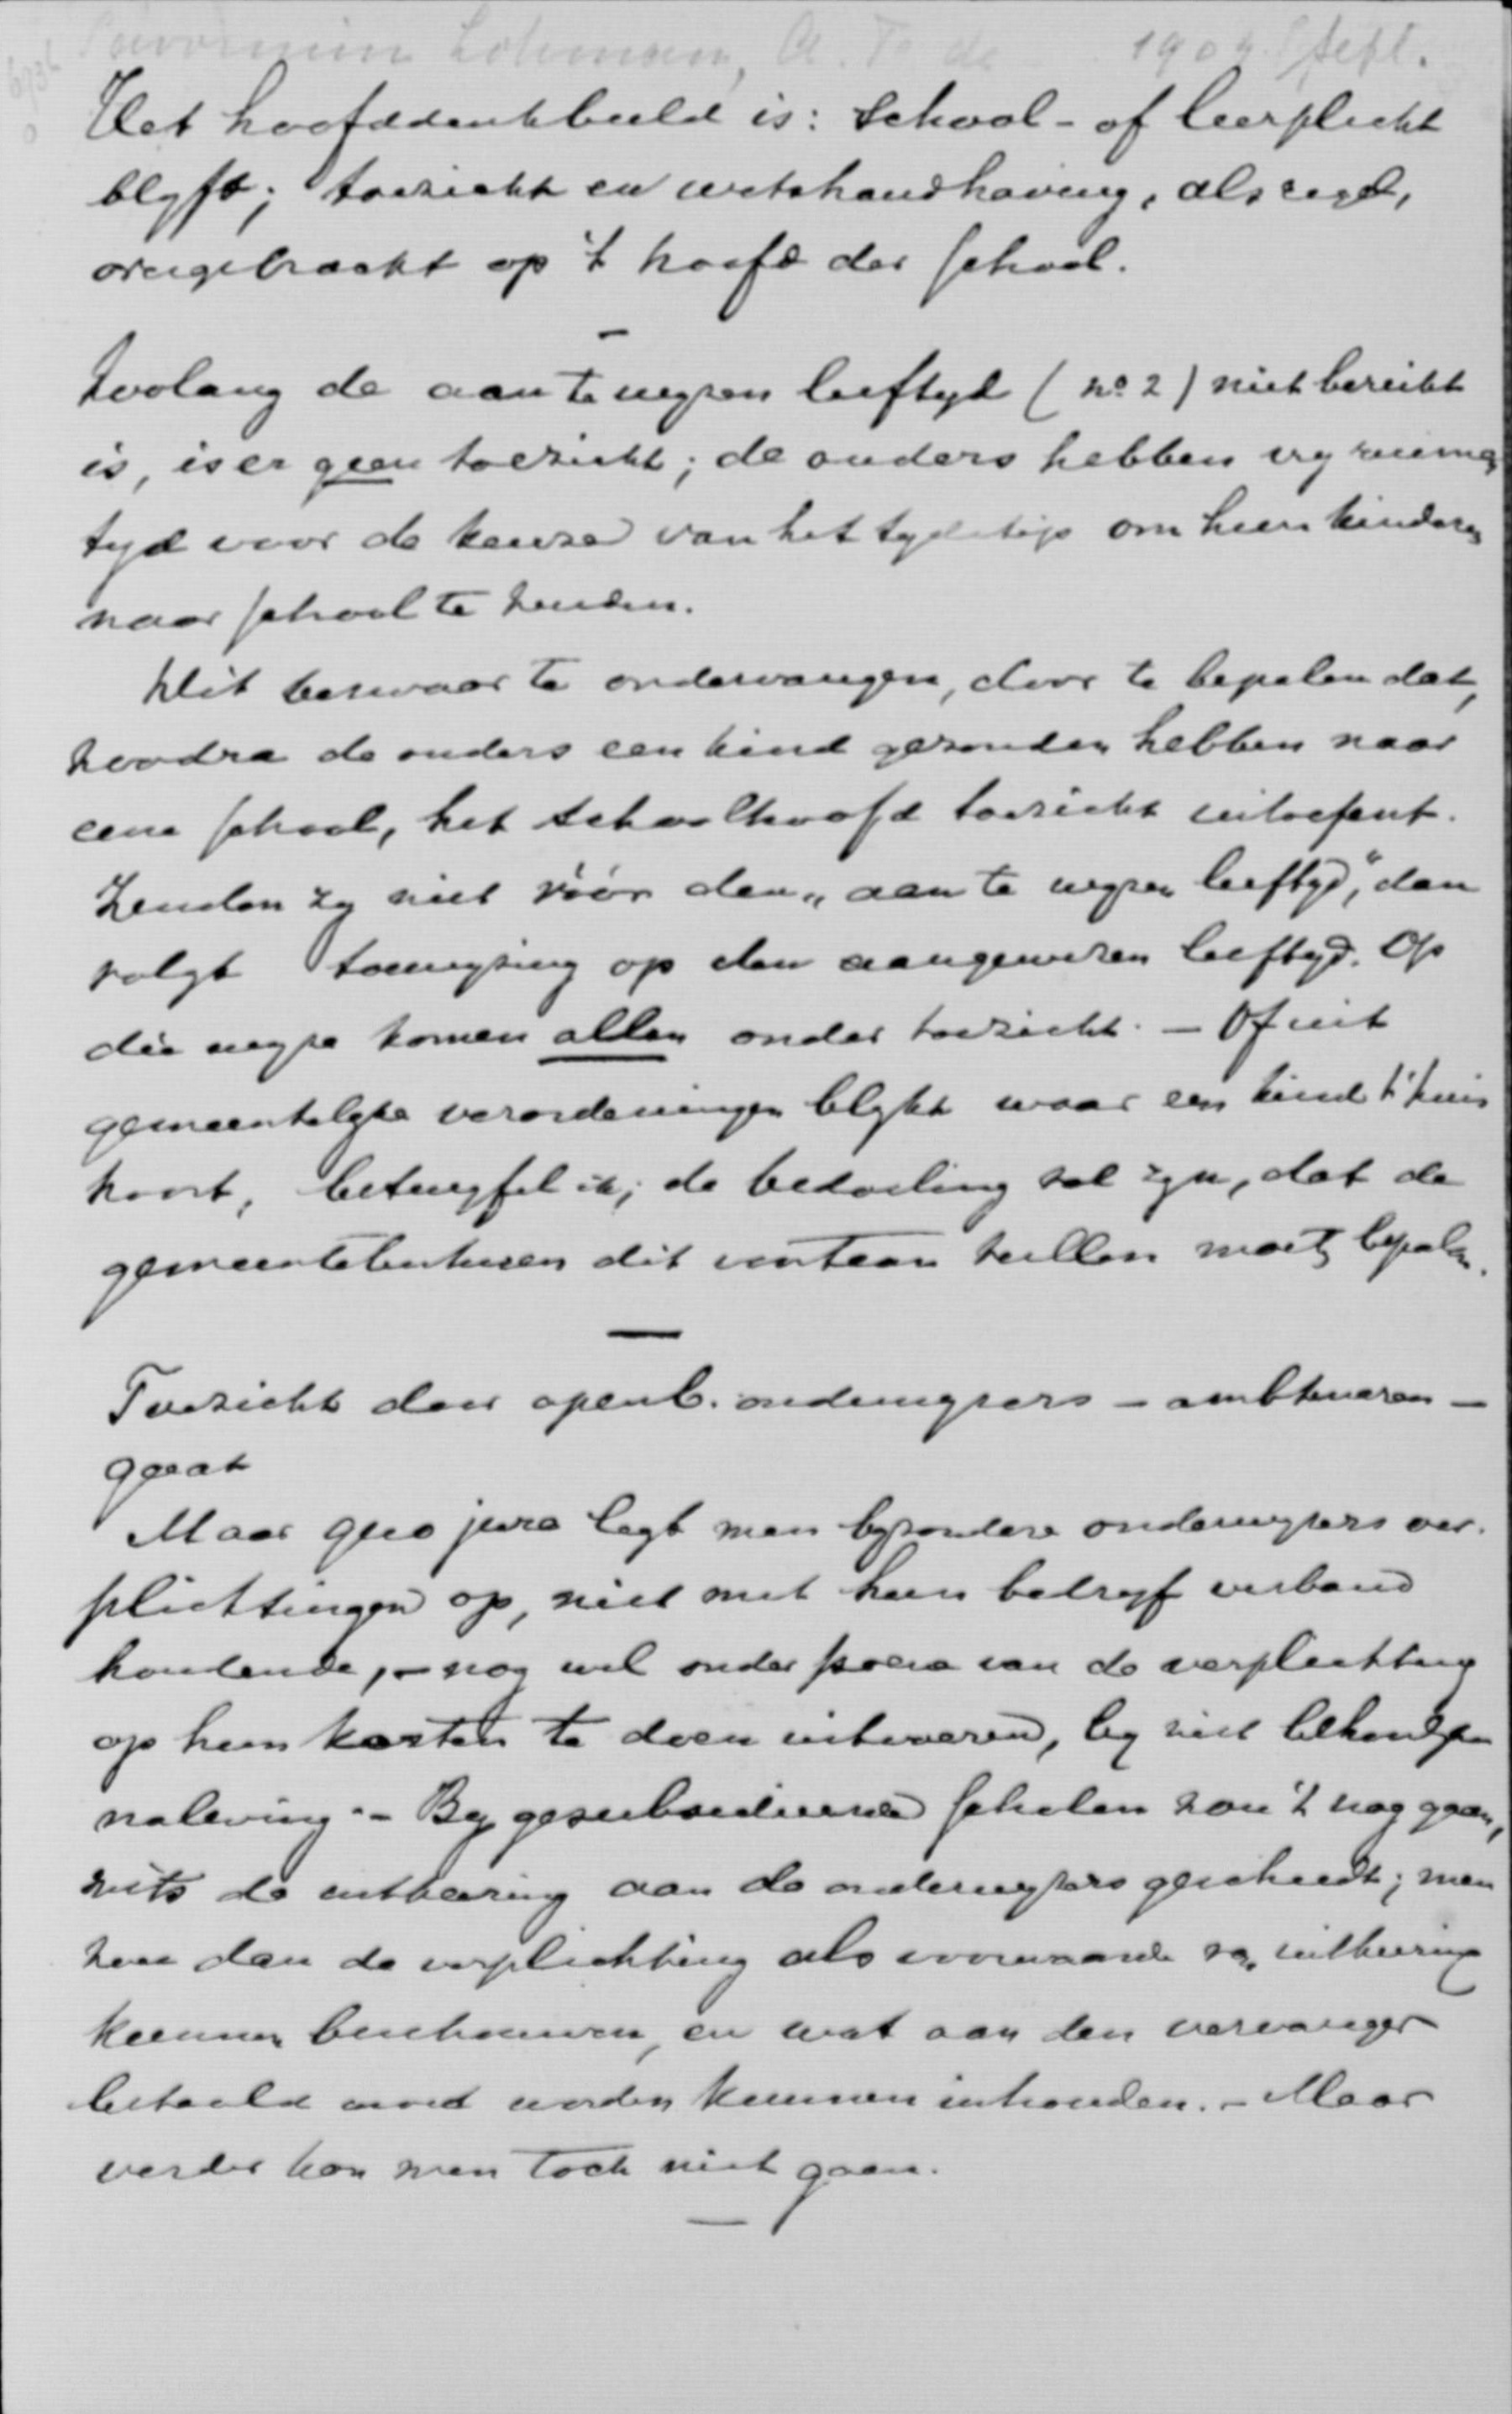 Savornin Lohman, A. F. de 1909 Sept.
Het hoofddenkbeeld is: school- of leerplicht
blyft; toezicht en wetshandhaving, als regel,
overgebracht op 't hoofd der school.
Zoolang de aan te wyzen leeftyd (no 2) niet bereikt
is, is er geen toezicht; de ouders hebben vry ruimen
tyd voor de keuze van het tydstip om hun kinderen
naar school te zenden.
Dit bezwaar te ondervangen, door te bepalen dat,
zoodra de ouders een kind gezonden hebben naar
eene school, het schoolhoofd toezicht uitoefent.
Zenden zy niet vóór den „aan te wyzen leeftyd", dan
volgt toewyzing op den aangewezen leeftyd. Op
die wyze komen allen onder toezicht. - Of uit
gemeentelyke verordeningen blykt waar een kind t'huis
hoort, betwyfel ik; de bedoeling zal zyn, dat de
gemeentebesturen dit voortaan zullen moeten bepalen.
Toezicht door openb. onderwyzers - ambtenaren -
gaat
Maar quo jure legt men byzondere onderwyzers ver-
plichtingen op, niet met hun bedryf verband
houdende, - nog wel onder poena van de verplichting
op hun kosten te doen uitvoeren, by niet behoorlyke
naleving. - By gesubsidieerde scholen zou 't nog gaan,
mits de uitkeering aan de onderwyzers geschiedt; men
zou dan de verplichting als voorwaarde uitkeering
kunnen beschouwen, en wat aan den vervanger
betaald moet worden kunnen inhouden. - Maar
verder kan men toch niet gaan.